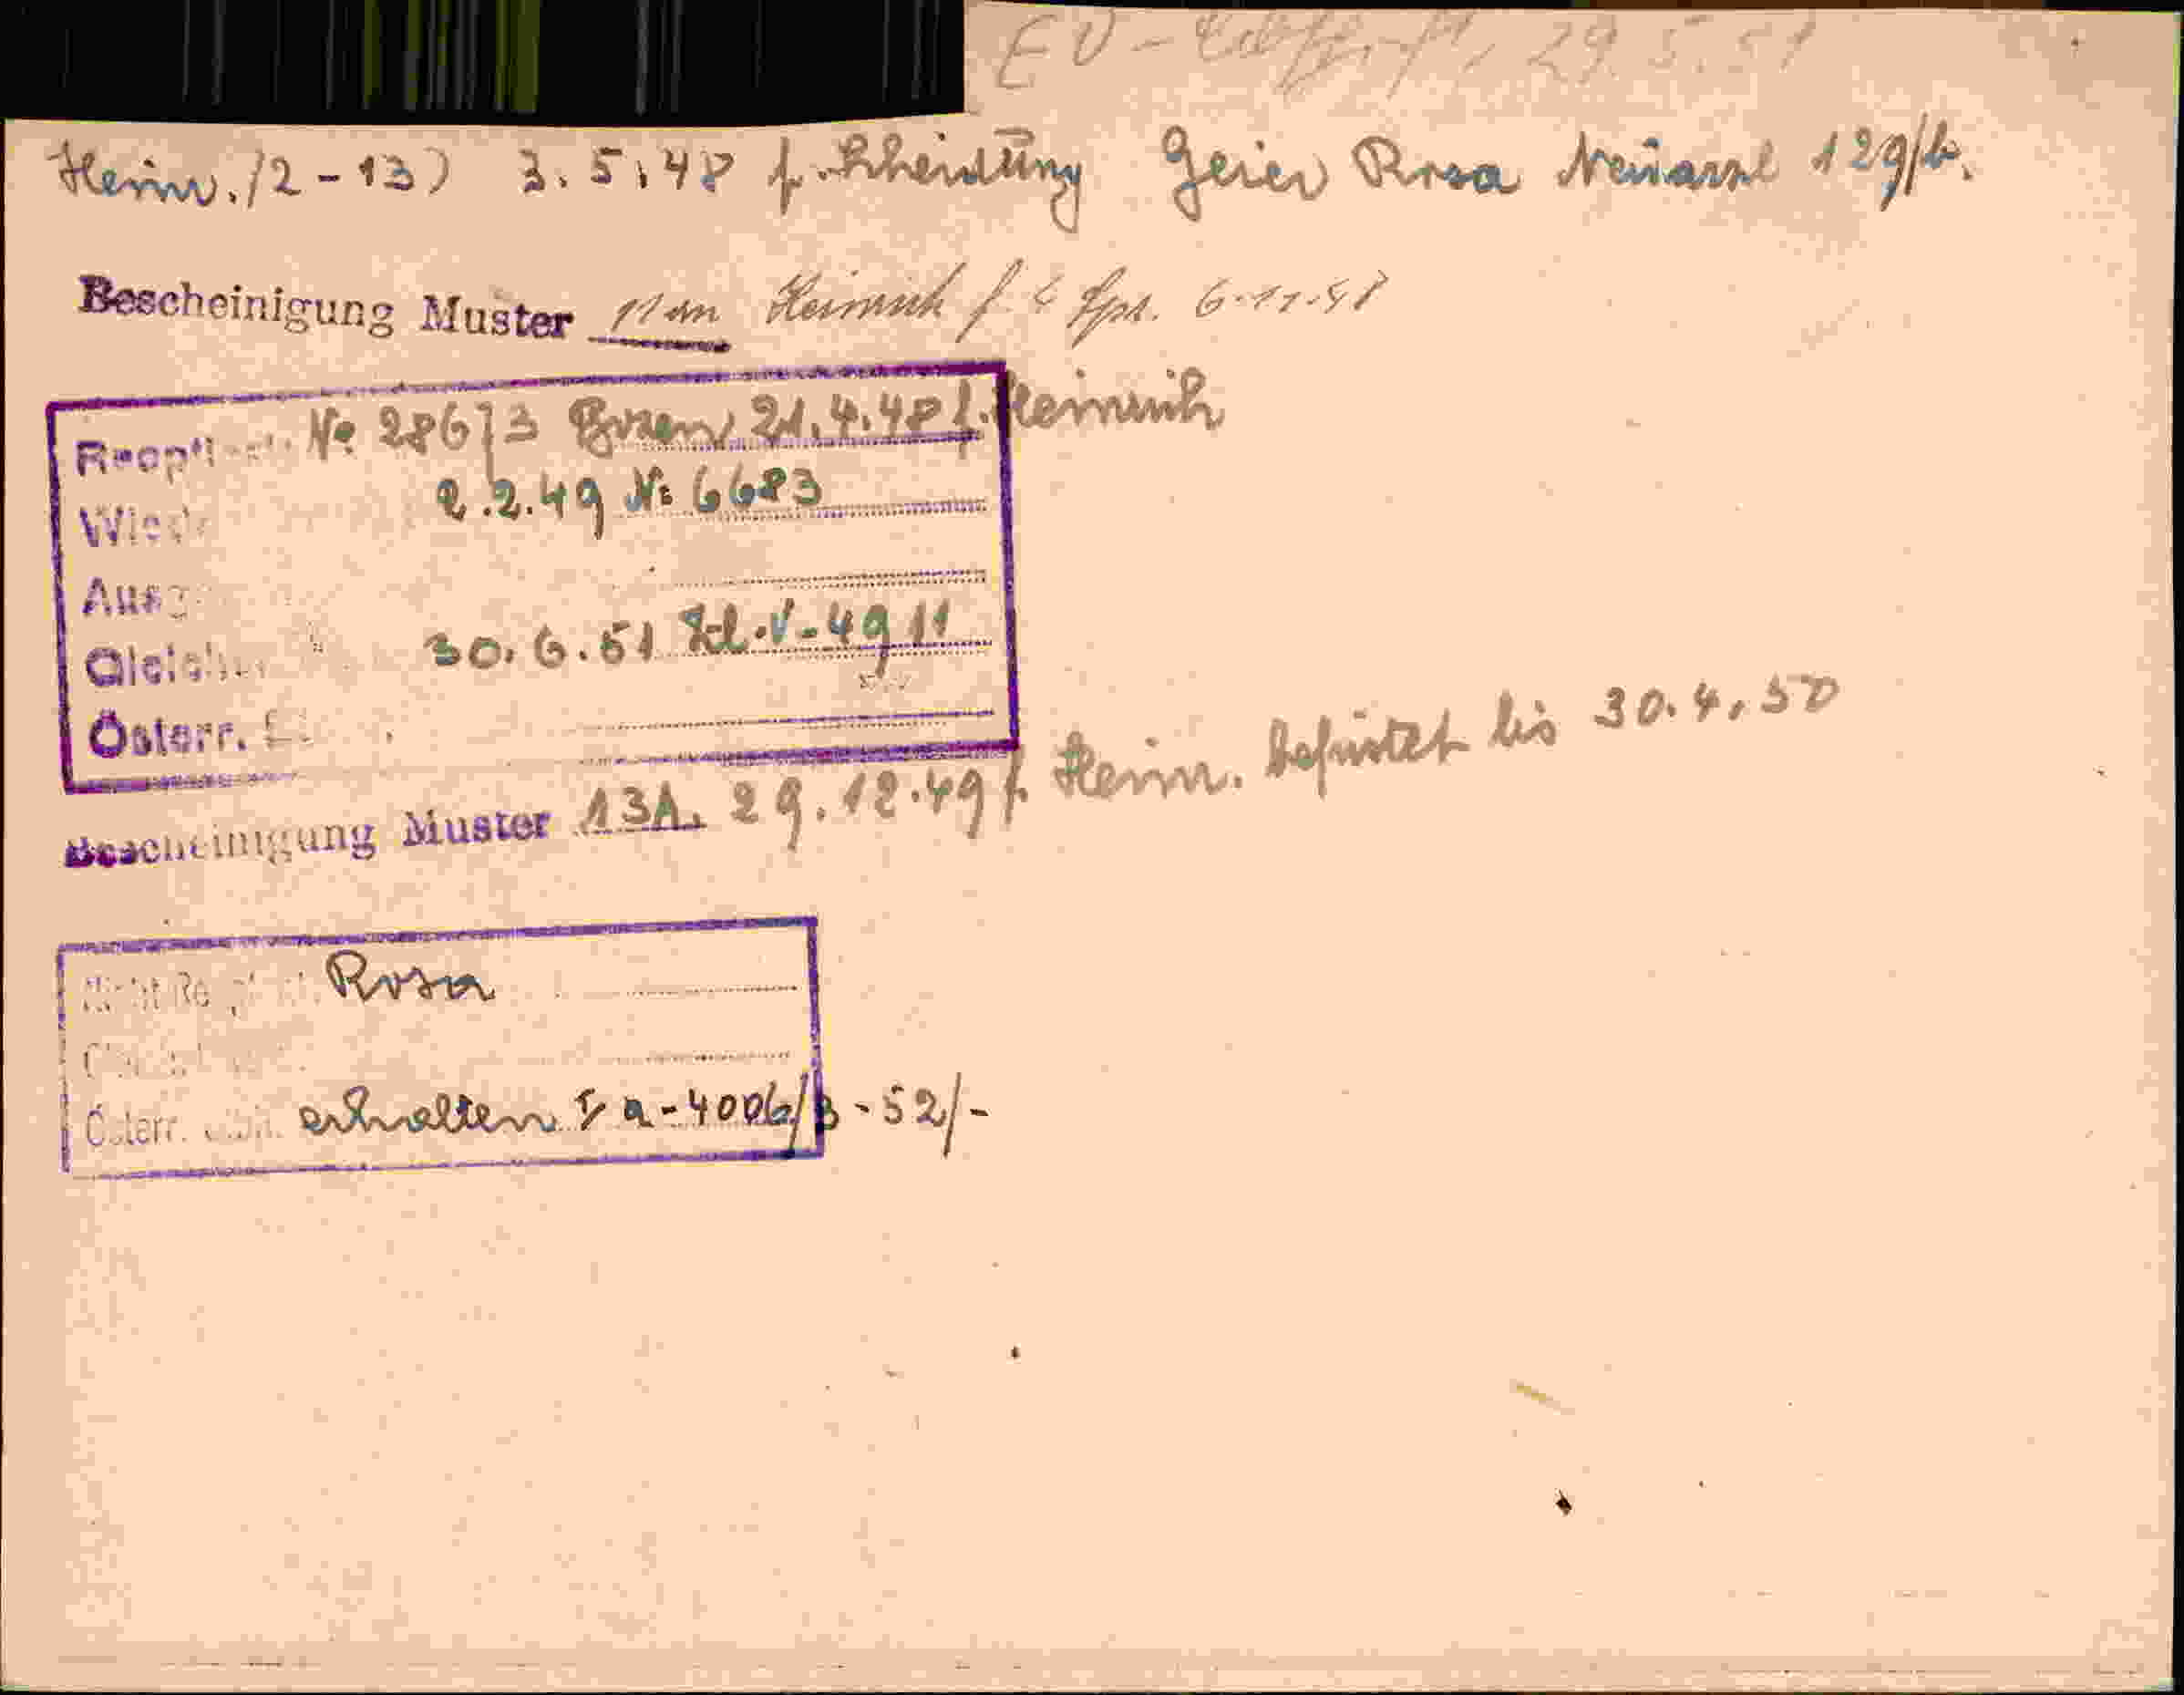 EV- 29.5.51
Heim. (2-13) 3.5.48 f. Scheidung Geier Rosa Neuarzl 129/b.
Bescheinigung Muster Heinrich f. 6.11.48
Reopti No 28673 Bozen 21.4.48 f. Heinrich
Wied 2.2.49 No 6683
Ausg
Gleich 30.6.51 Zl.V-4911
Österr.
Bescheinigung Muster 13A. 29.12.49 f. Heim. befristet bis 30.4.50
Rosa
Österr. erhalten Ia-4006/3-52/-